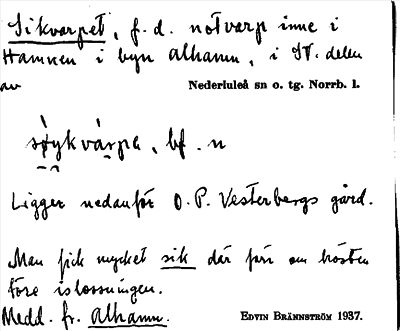 Sikvarpet, f.d. notvarp inne i
Hamnen i byn Alhamn, i SV. delen
av Nederluleå sn o. tg. Norrb. l.
bf. n
Ligger nedanför O. P. Vesterbergs gård.
Man fick mycket sik där förr om hösten
före islossningen.
Medd. fr. Alhamn. EDVIN BRÄNNSTRÖM 1937.